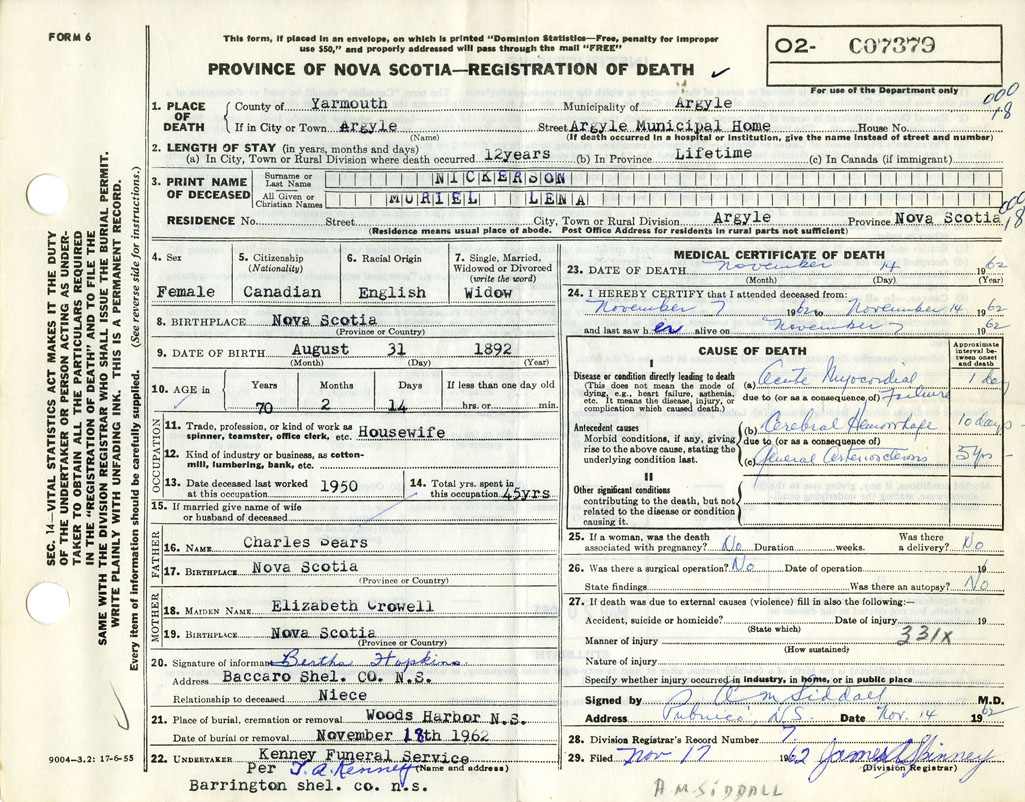 FORM 6
This form, if placed in an envelope, on which is printed "Dominion Statistics—Free, penalty for improper
use $50," and properly addressed will pass through the mail "FREE"
PROVINCE OF NOVA SCOTIA—REGISTRATION OF DEATH ✓
02- C07379
For use of the Department only
000
18
1. PLACE OF DEATH
County of Yarmouth Municipality of Argyle
If in City or Town Argyle Street Argyle Municipal Home House No.
(Name) (If death occurred in a Hospital or Institution, give the name instead of street and number)
2. LENGTH OF STAY (in years, months and days)
(a) In City, Town or Rural Division where death occurred 12years (b) In Province Lifetime (c) In Canada (if immigrant)
3. PRINT NAME OF DECEASED
Surname or Last Name NICKERSON
All Given or Christian Names MURIEL LENA
000
18
RESIDENCE No. Street City, Town or Rural Division Argyle Province Nova Scotia
(Residence means usual place of abode. Post Office Address for residents in rural parts not sufficient)
4. Sex
Female
5. Citizenship
(Nationality)
Canadian
6. Racial Origin
English
7. Single, Married,
Widowed or Divorced
(write the word)
Widow
8. BIRTHPLACE Nova Scotia
(Province or Country)
9. DATE OF BIRTH August 31 1892
(Month) (Day) (Year)
10. AGE in Years Months Days If less than one day old
70 2 14 hrs. or min.
OCCUPATION
11. Trade, profession, or kind of work as
spinner, teamster, office clerk, etc. Housewife
12. Kind of industry or business, as cotton-
mill, lumbering, bank, etc.
13. Date deceased last worked
at this occupation 1950
14. Total yrs. spent in
this occupation 45yrs
15. If married give name of wife
or husband of deceased
FATHER
16. NAME Charles Sears
17. BIRTHPLACE Nova Scotia
(Province or Country)
MOTHER
18. MAIDEN NAME Elizabeth Crowell
19. BIRTHPLACE Nova Scotia
(Province or Country)
20. Signature of informant Bertha Hopkins
Address Baccaro Shel. CO. N.S.
Relationship to deceased Niece
21. Place of burial, cremation or removal Woods Harbor N.S.
Date of burial or removal November 18th 1962
22. UNDERTAKER Kenney Funeral Service
Per T.A. Kenney (Name and address)
Barrington shel. co. n.s.
MEDICAL CERTIFICATE OF DEATH
23. DATE OF DEATH November 14 1962
(Month) (Day) (Year)
24. I HEREBY CERTIFY that I attended deceased from:
November 7 1962 to November 14 1962
and last saw her alive on November 7 1962
CAUSE OF DEATH
Approximate
interval be-
tween onset
and death
I
Disease or condition directly leading to death
(This does not mean the mode of
dying, e.g., heart failure, asthenia,
etc. It means the disease, injury, or
complication which caused death.)
(a) Acute Myocordial 1 day
due to (or as a consequence of) Failure
Antecedent causes
Morbid conditions, if any, giving
rise to the above cause, stating the
underlying condition last.
(b) Cerebral Hemorrhage 10 days -
due to (or as a consequence of)
(c) General Arteriosclerosis 5 yrs -
II
Other significant conditions
contributing to the death, but not
related to the disease or condition
causing it.
25. If a woman, was the death
associated with pregnancy? No Duration weeks. Was there
a delivery? No
26. Was there a surgical operation? No Date of operation 19
State findings Was there an autopsy? No
27. If death was due to external causes (violence) fill in also the following:—
Accident, suicide or homicide? Date of injury 19
(State which)
331X
Manner of injury
(How sustained)
Nature of injury
Specify whether injury occurred in industry, in home, or in public place
Signed by A M Siddall M.D.
Address Pubnico, N.S. Date Nov. 14 1962
28. Division Registrar's Record Number 7
29. Filed Nov 17 1962 James Skinney
(Division Registrar)
A.M. SIDDALL
SEC. 14—VITAL STATISTICS ACT MAKES IT THE DUTY
OF THE UNDERTAKER OR PERSON ACTING AS UNDER-
TAKER TO OBTAIN ALL THE PARTICULARS REQUIRED
IN THE "REGISTRATION OF DEATH" AND TO FILE THE
SAME WITH THE DIVISION REGISTRAR WHO SHALL ISSUE THE BURIAL PERMIT.
WRITE PLAINLY WITH UNFADING INK. THIS IS A PERMANENT RECORD.
Every item of information should be carefully supplied. (See reverse side for instructions.)
9004—3.2: 17-6-55